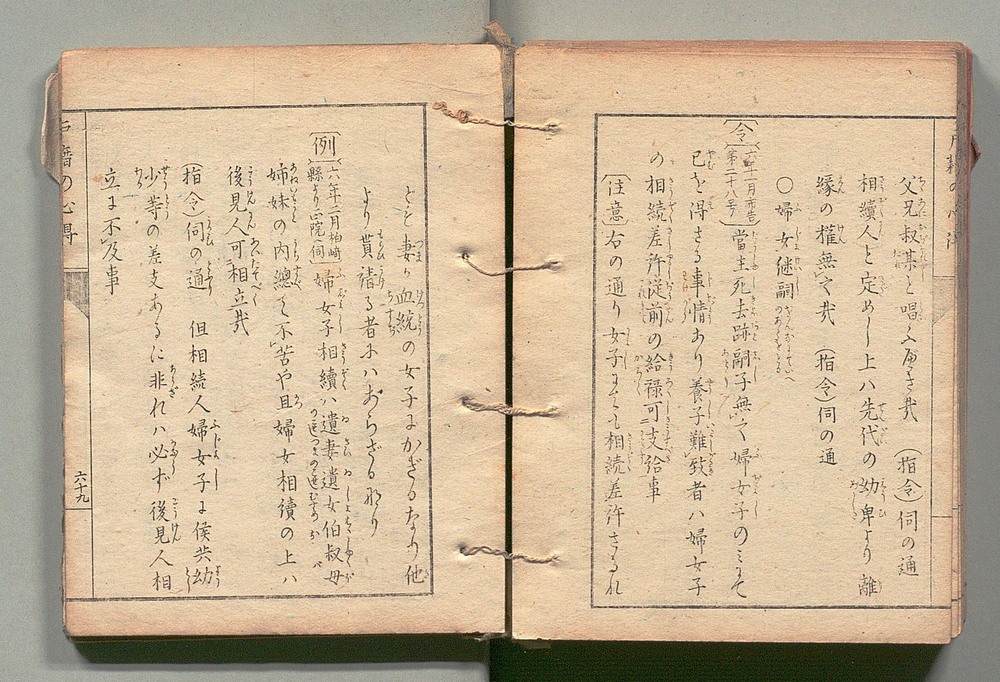 父兄叔某と唱ふ可き哉 (指令)伺の通
相續人と定めし上ハ先代の幼卑より離
縁の權無之哉 (指令)伺の通
〇婦女継嗣
〔令〕六年一月布告第二十八号 當主死去跡嗣子無之婦女子のミにて
已を得さる事情あり養子難致者ハ婦女子
の相續差許従前の給禄可支給事
〔注意〕右の通り女子にても相続差許さるれ
とも妻か血統の女子にかぎるなり他
より貰請る者にハあらざるなり
〔例〕六年二月柏崎縣より正院へ伺 婦女子相續ハ遺妻遺女伯叔母
姉妹の内總て不苦や且婦女相續の上ハ
後見人可相立哉
(指令)伺の通 但相続人婦女子に候共幼
少等の差支あるに非れハ必ず後見人相
立に不及事
六十九